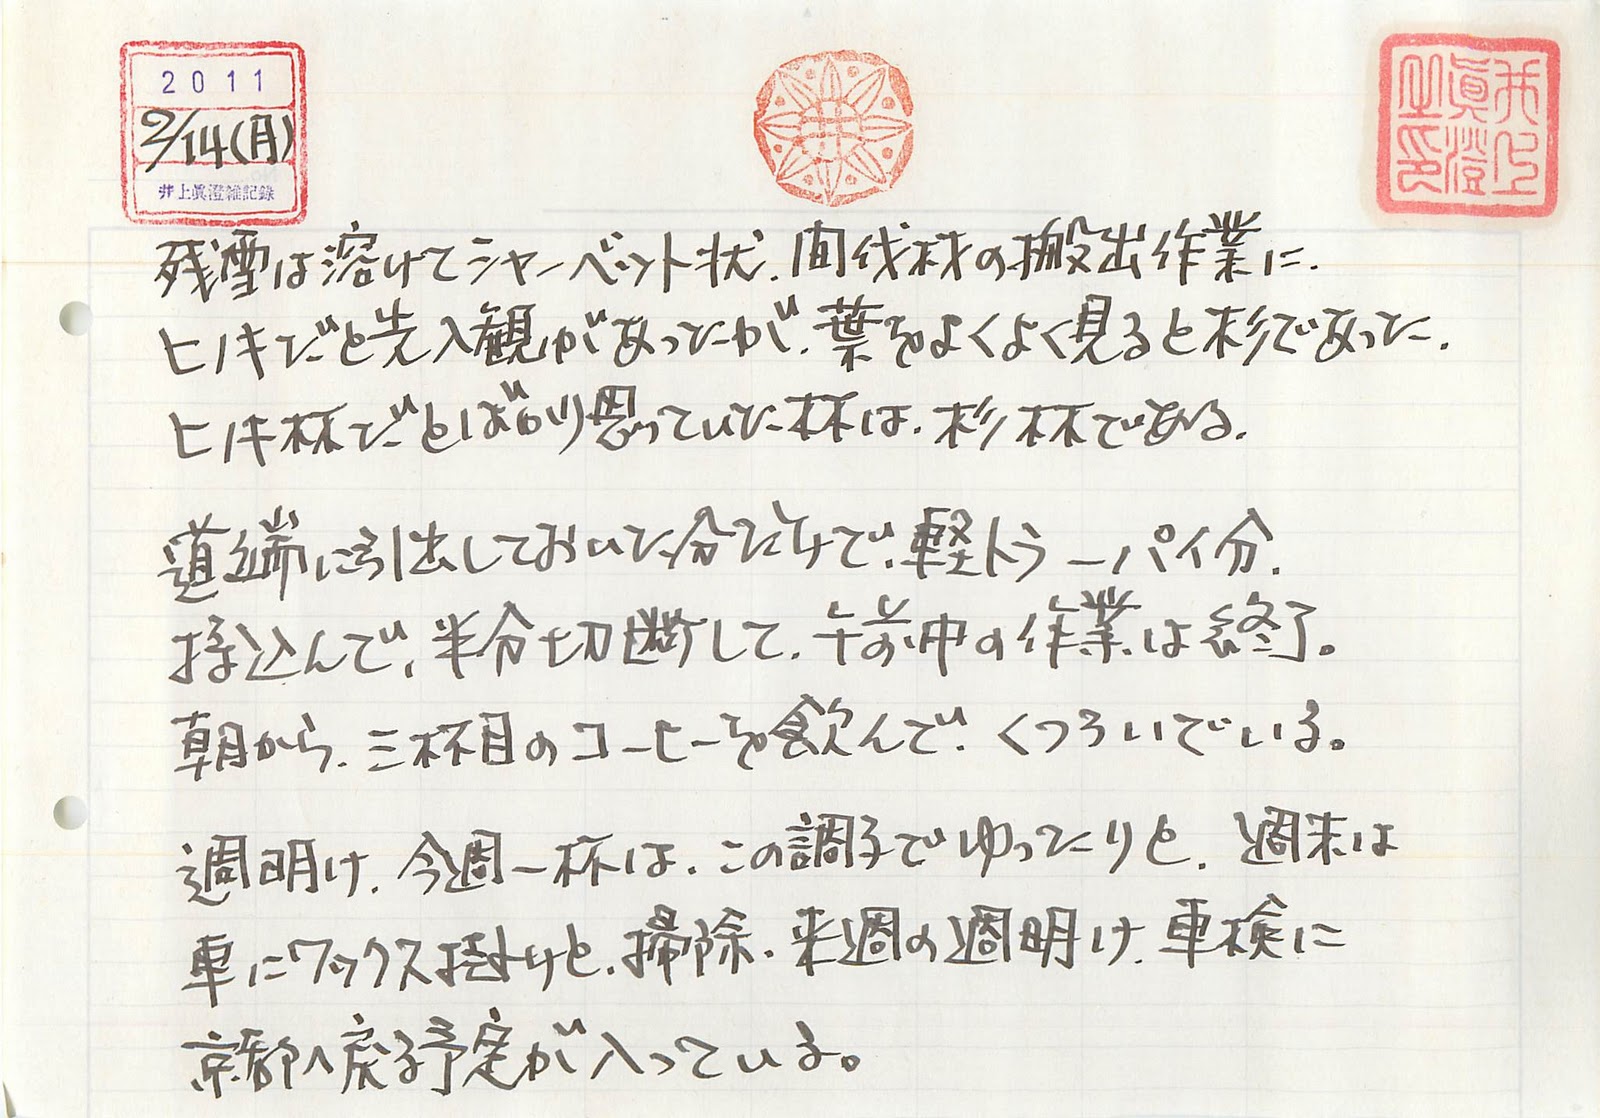 2011
2/14(月)
井上眞澄雑記録
井上眞澄之印
残雪は溶けてシャーベット状.間伐材の搬出作業に.
ヒノキだと先入観ががあったが.葉をよくよく見ると杉であった.
ヒノキ林だとばかり思っていた林は.杉林である.
道端に引出しておいた分だけで.軽トラ一パイ分.
持込んで.半分切断して.午前中の作業は終了。
朝から.三杯目のコーヒーを飲んで.くつろいでいる。
週明け.今週一杯は.この調子でゆったりと.週末は
車にワックス掛けと.掃除.来週の週明け.車検に
京都へ戻る予定が入っている。